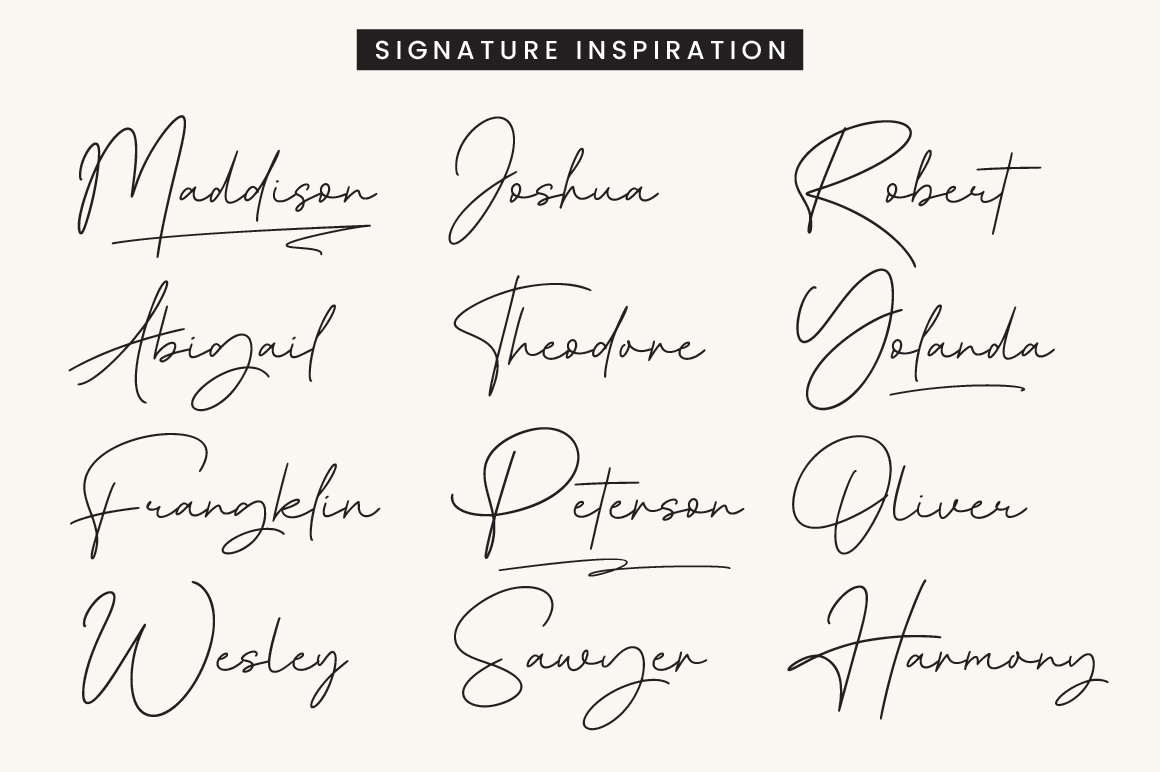 SIGNATURE INSPIRATION
Maddison Joshua Robert
Abigail Theodore Yolanda
Frangklin Peterson Oliver
Wesley Sawyer Harmony